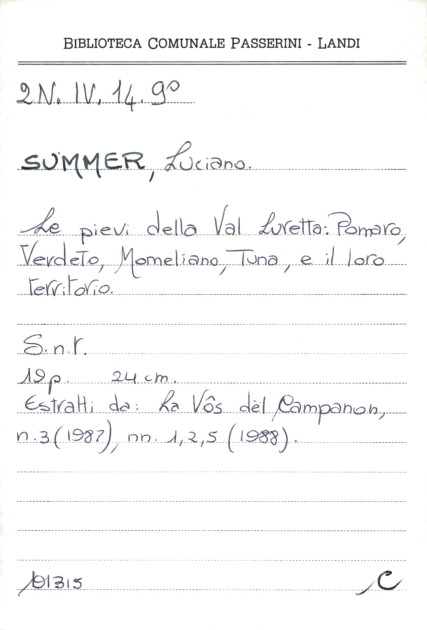 BIBLIOTECA COMUNALE PASSERINI - LANDI
2N. IV. 14. 9°
SUMMER, Luciano.
Le pievi della Val Luretta: Pomaro,
Verdeto, Momeliano, Tuna, e il loro
territorio.
S.n.t.
19p. 24 cm.
Estratti da: La Vôs dël Campanon,
n.3 (1987), nn. 1,2,5 (1988).
C